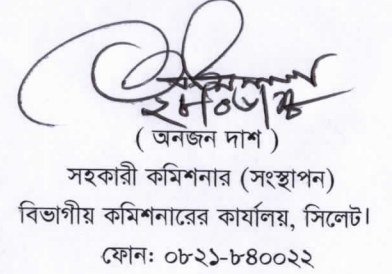 ( অনজন দাশ )
সহকারী কমিশনার (সংস্থাপন)
বিভাগীয় কমিশনারের কার্যালয়, সিলেট।
ফোন: ০৮২১-৮৪০০২২